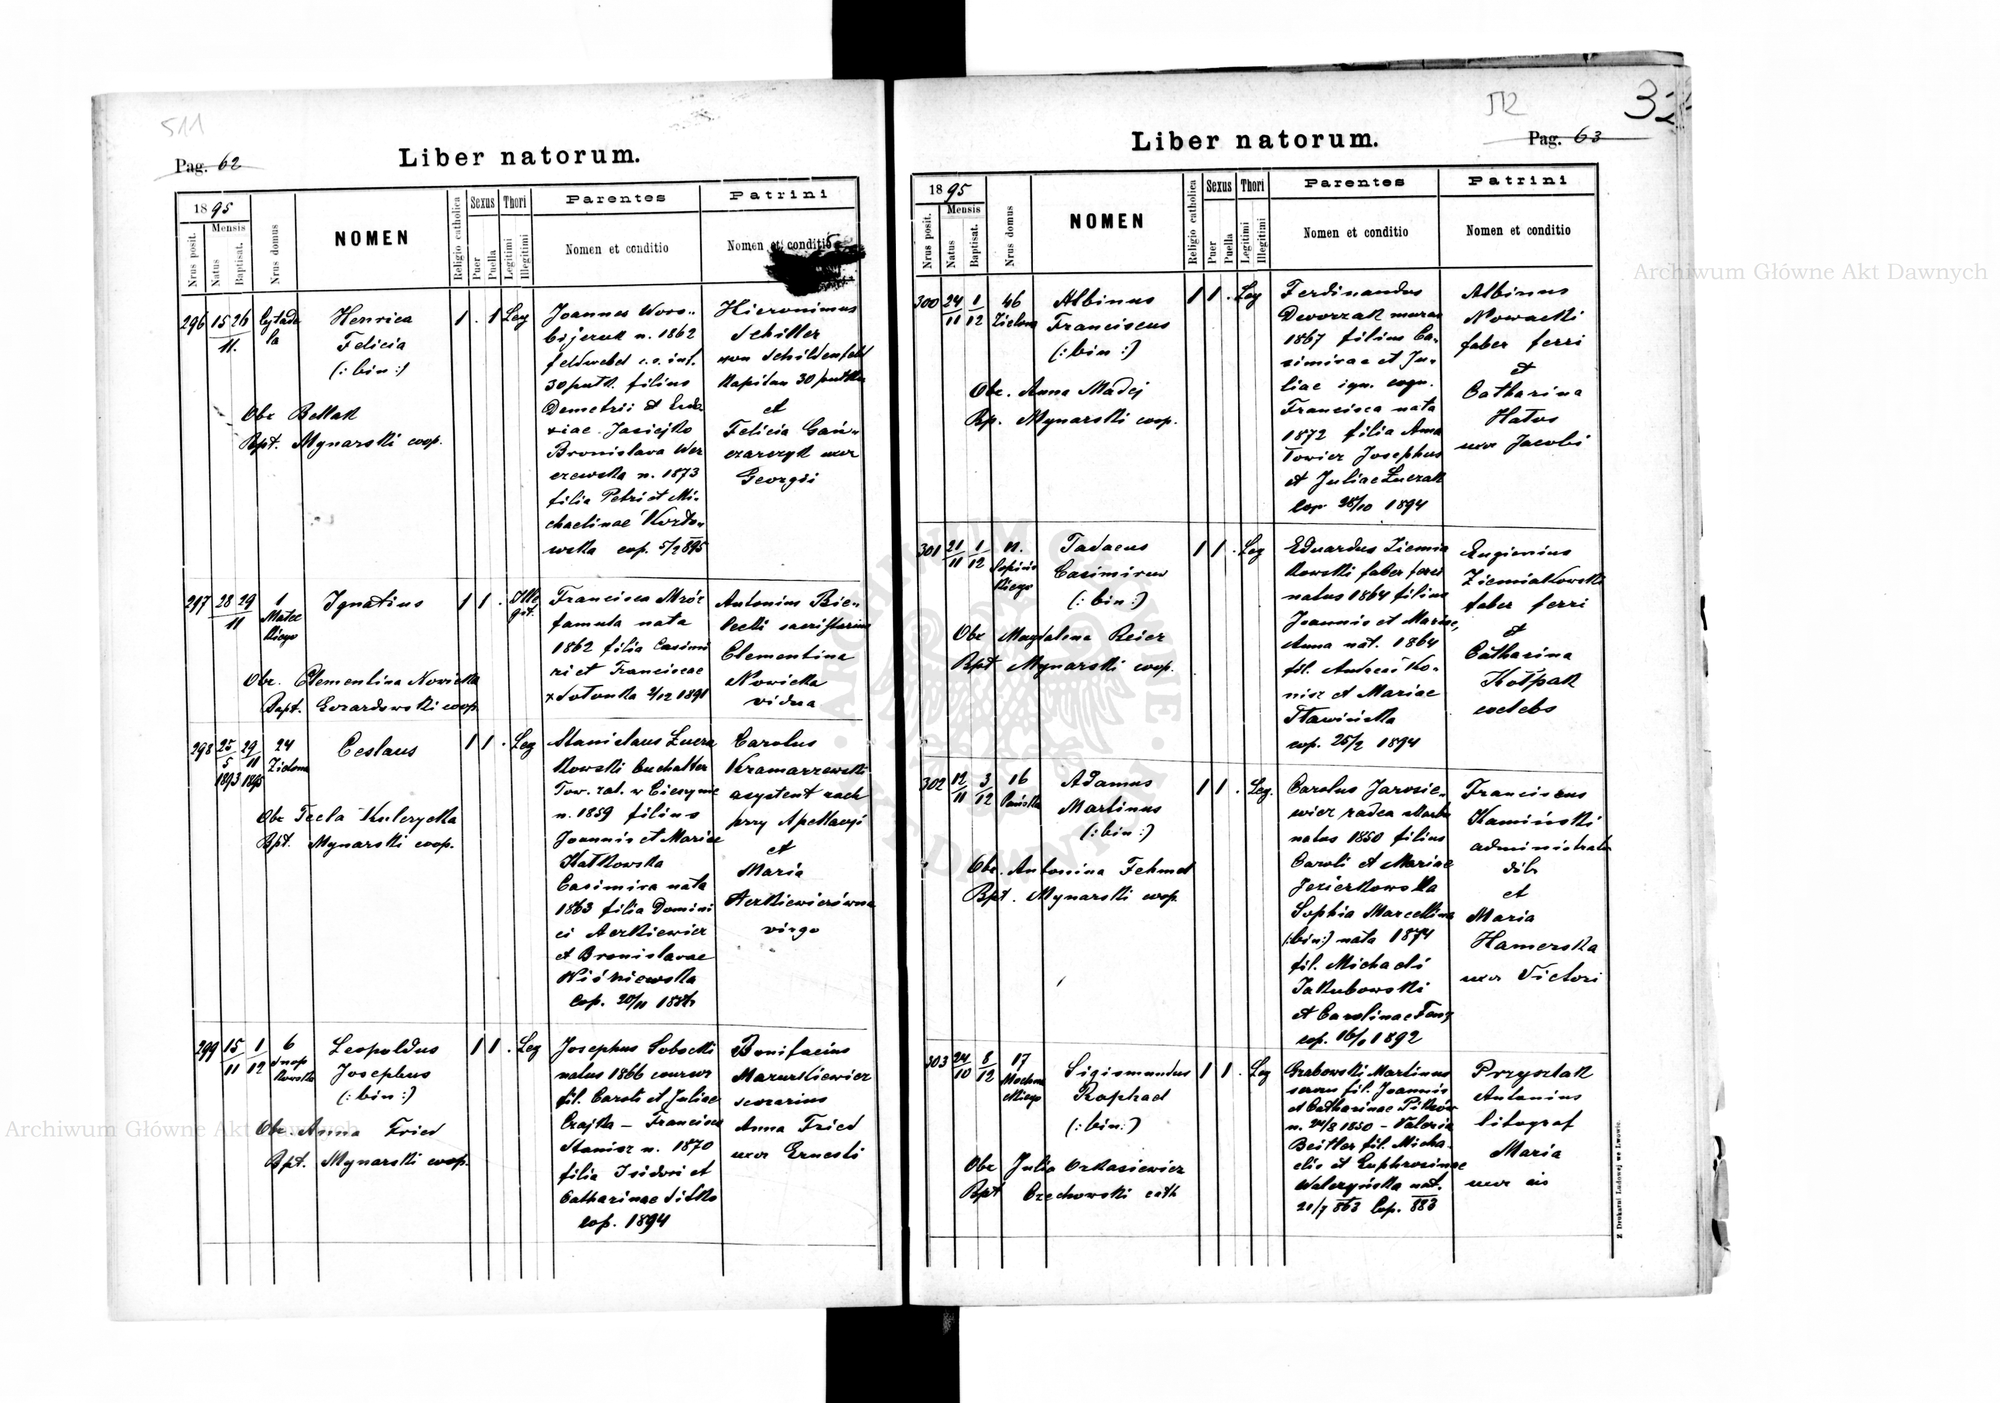 511
Pag. 62
Liber natorum.
1895
Mensis
Nrus posit.
Natus
Baptisat.
Nrus domus
NOMEN
Religio catholica
Sexus
Puer
Puella
Thori
Legitimi
Illegitimi
Parentes
Nomen et conditio
Patrini
Nomen et conditio
296 15/11. 26 Cytade
la
Henrica
Felicia
(: bin :)
Obr Bellak
Bpt. Mynarski coop.
1 . 1 Leg
Joannes Woro-
bijczuk n. 1862
feldwebel c. r. inf.
30 pułk. filius
Demetrii et
Jasiejko
Bronislava Wer
czewska n. 1873
filia Petri et Mi-
chaelinae
wska cop. 5/2 895
Hieronimus
Schiller
von Schildenfeld
Kapitan 30 pułku
et
Felicia Gań-
czarczyk uxor
Georgii
297 28 29/11 1
Małec
kiego
Ignatius
Obr. Clementina Nowicka
Bapt. Evrardowski coop.
1 1 . Ille
git.
Francisca Mróz
famula nata
1862 filia Casimi
ri et Franciscae
Antonius Bie-
lecki
Clementina
Nowicka
vidua
298 25/5 1893 29/11 1895 24
Zielona
Ceslaus
Obr Tecla Kulczycka
Bpt. Mynarski coop.
1 1 . Leg
Stanislaus Lucza
kowski buchalter
Tow. zal. w Cieszynie
n. 1859 filius
Joannis et Mariae
Kałkowska
Casimira nata
1863 filia Domini
ci Aczkiewicz
et Bronislavae
Wiśniewska
Cop. 20/11
Carolus
Kramarzewski
asystent rach
przy Apellacyi
et
Maria
Aczkiewiczówna
virgo
299 15/11 1/12 6
Snop
kowska
Leopoldus
Josephus
(: bin :)
Obr. Anna Fried
Bpt. Mynarski coop.
1 1 . Leg
Josephus Sobocki
natus 1866
fil. Caroli et Juliae
Czajka – Francisca
Stanisz n. 1870
filia Isidori et
Catharinae Sitko
Cop. 1894
Bonifacius
Mazurkiewicz
Anna Fried
uxor Ernesti
512
32
Pag. 63
Liber natorum.
1895
Mensis
Nrus posit.
Natus
Baptisat.
Nrus domus
NOMEN
Religio catholica
Sexus
Puer
Puella
Thori
Legitimi
Illegitimi
Parentes
Nomen et conditio
Patrini
Nomen et conditio
300 24/11 1/12 46
Zielona
Albinus
Franciscus
(: bin :)
Obr. Anna Madej
Bp. Mynarski coop.
1 1 . Leg
Ferdinandus
Dworzak murar
1867 filius Ca-
simirae et Ju-
liae ign. cogn.
Francisca nata
1872 filia Ama
towicz Josephus
et Juliae Łuczak
Cop 28/10 1894
Albinus
Nowacki
faber ferri
et
Catharina
Hatus
uxor Jacobi
301 21/11 1/12 11.
Sapieh
kiego
Tadaeus
Casimirus
(: bin :)
Obr Magdalena Reier
Bpt Mynarski coop.
1 1 . Leg
Eduardus Ziemia
kowski faber ferri
natus 1864 filius
Joannis et Mariae,
Anna nat. 1864
fil. Andreae Ko-
nisz et Mariae
Sławińska
cop. 25/2 1894
Eugenius
Ziemiałkowski
faber ferri
et
Catharina
Kołpak
coelebs
302 12/11 3/12 16
Pańska
Adamus
Martinus
(: bin :)
Obr. Antonina Fehmel
Bpt. Mynarski coop.
1 1 . Leg.
Carolus Jarosie-
wicz radca
natus 1850 filius
Caroli et Mariae
Jezierkowska
Sophia Marcellina
(: bin :) nata 1874
fil. Michaeli
Jakubowski
et Carolinae Fang
cop. 1892
Franciscus
Kamiński
administrator
dóbr
et
Maria
Hamerska
uxor Victori
303 24/10 8/12 17
Mochna
ckiego
Sigismundus
Raphael
(: bin :)
Obr Julia Orkasiewicz
Bpt Czechowski cath
1 1 . Leg
Grabowski Martinus
servus fil. Joannis
et Catharinae Pikzów
n. 24/8 1850 – Valeria
Beitler fil. Micha-
elis et Euphrosinae
Walczyńska nat.
21/7 863 Cop. 883
Przysztak
Antonius
litograf
Maria
uxor eis
Z Drukarni Ludowej we Lwowie.
Archiwum Główne Akt Dawnych
Archiwum Główne Akt Dawnych
ARCHIWUM GŁÓWNE AKT DAWNYCH